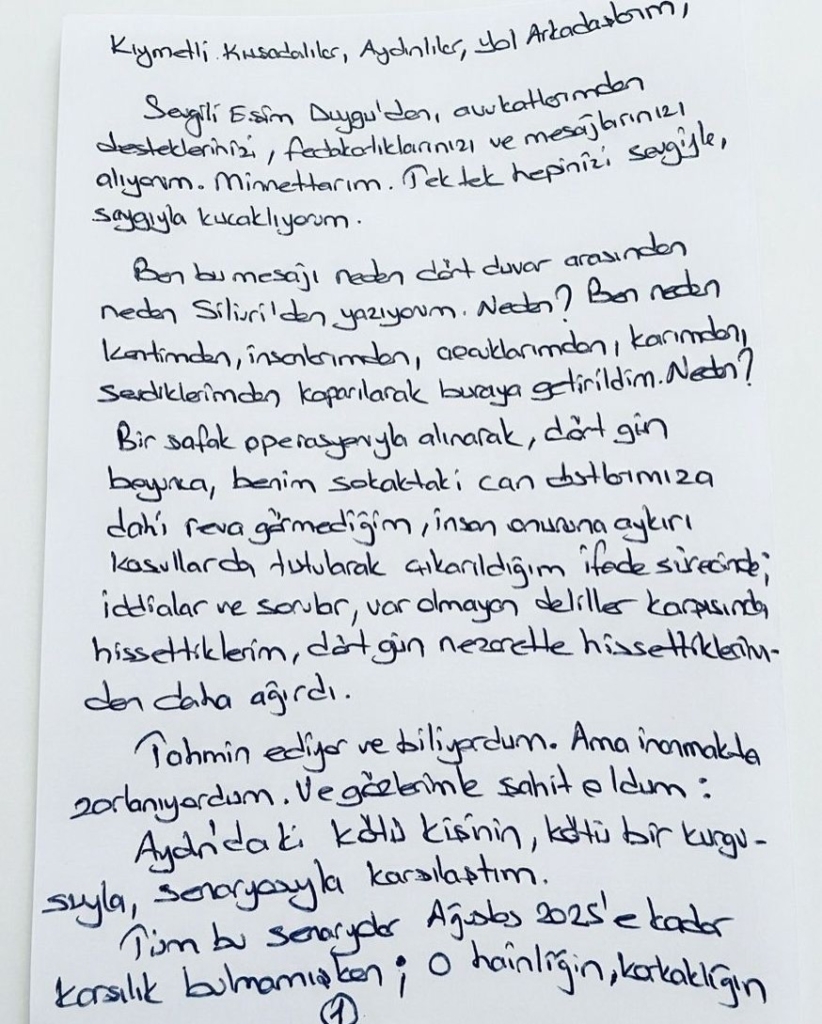 Kıymetli Kuşadalılar, Aydınlılar, Yol Arkadaşlarım,
Sevgili Eşim Duygu'den, avukatlarımdan
desteklerinizi, fedakarlıklarınızı ve mesajlarınızı
alıyorum. Minnettarım. Tek tek hepinizi sevgiyle,
saygıyla kucaklıyorum.
Ben bu mesajı neden dört duvar arasından
neden Silivri'den yazıyorum. Neden? Ben neden
kentimden, insanlarımdan, çocuklarımdan, karımdan,
sevdiklerimden koparılarak buraya getirildim. Neden?
Bir şafak operasyonuyla alınarak, dört gün
boyunca, benim sokaktaki can dostlarımıza
dahi reva görmediğim, insan onuruna aykırı
koşullarda tutularak çıkarıldığım ifade sürecinde;
iddialar ve sorular, var olmayan deliller karşısında
hissettiklerim, dört gün nezarette hissettiklerim-
den daha ağırdı.
Tahmin ediyor ve biliyordum. Ama inanmakta
zorlanıyordum. Ve gözlerimle şahit oldum:
Aydın'daki kötü kişinin, kötü bir kurgu-
suyla, senaryosuyla karşılaştım.
Tüm bu senaryolar Ağustos 2025'e kadar
karşılık bulmamışken; o hainliğin, korkaklığın
1